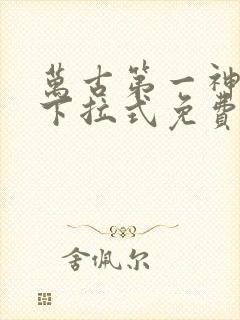 萬古第一神
下拉式免費
舍佩尔